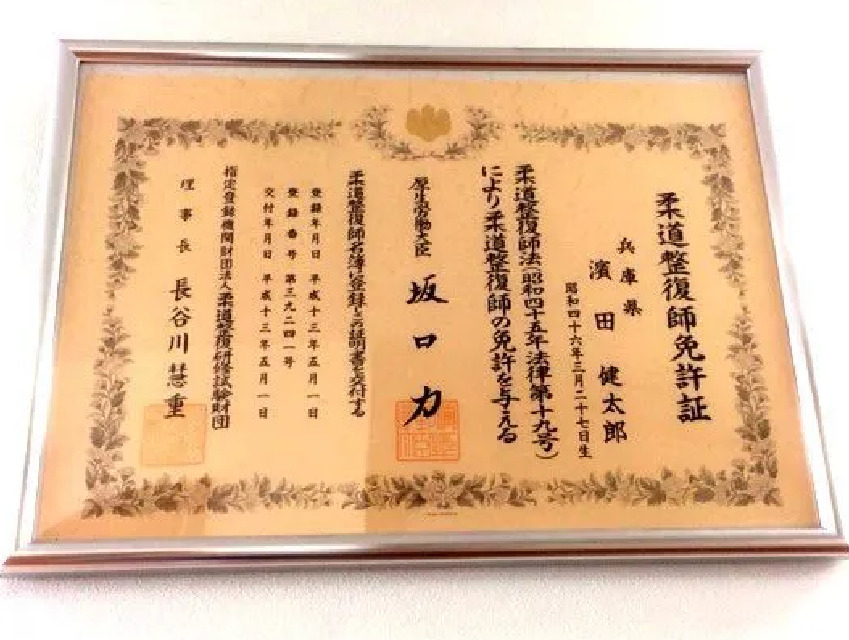 柔道整復師免許証
兵庫県
濱田 健太郎
昭和四十六年三月二十七日生
柔道整復師法(昭和四十五年法律第十九号)
により柔道整復師の免許を与える
厚生労働大臣 坂口力
柔道整復師名簿に登録しこの証明書を交付する
登録年月日 平成十三年五月一日
登録番号 第三九二四一号
交付年月日 平成十三年五月一日
指定登録機関財団法人柔道整復研修試験財団
理事長 長谷川慧重